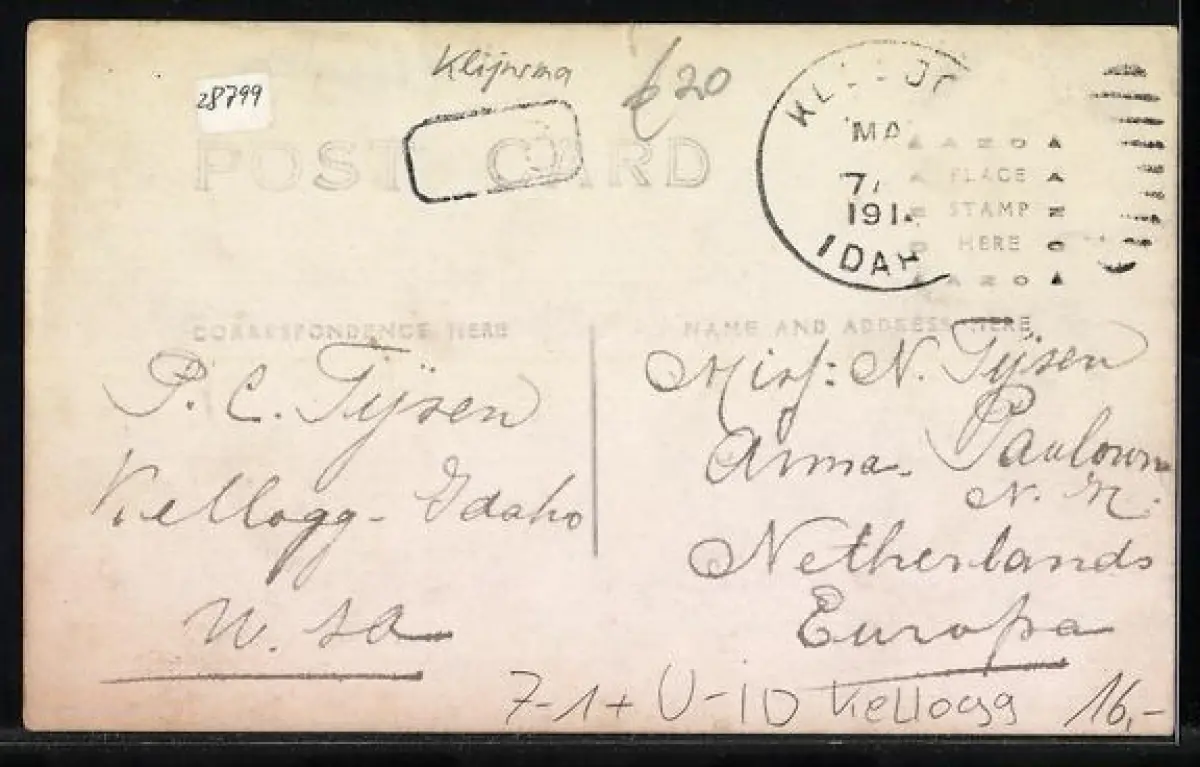 Klijnsma
€20
28799
POST CARD
MA
7
191
IDAH
AZOA
PLACE
STAMP
HERE
AZOA
CORRESPONDENCE HERE
NAME AND ADDRESS HERE
P. C. Tijsen
Kellogg - Idaho
U. SA
Miss: N. Tijsen
Anna. Paulowna
N. H.
Netherlands
Europa
7-1+ U-ID Kellogg 16,-